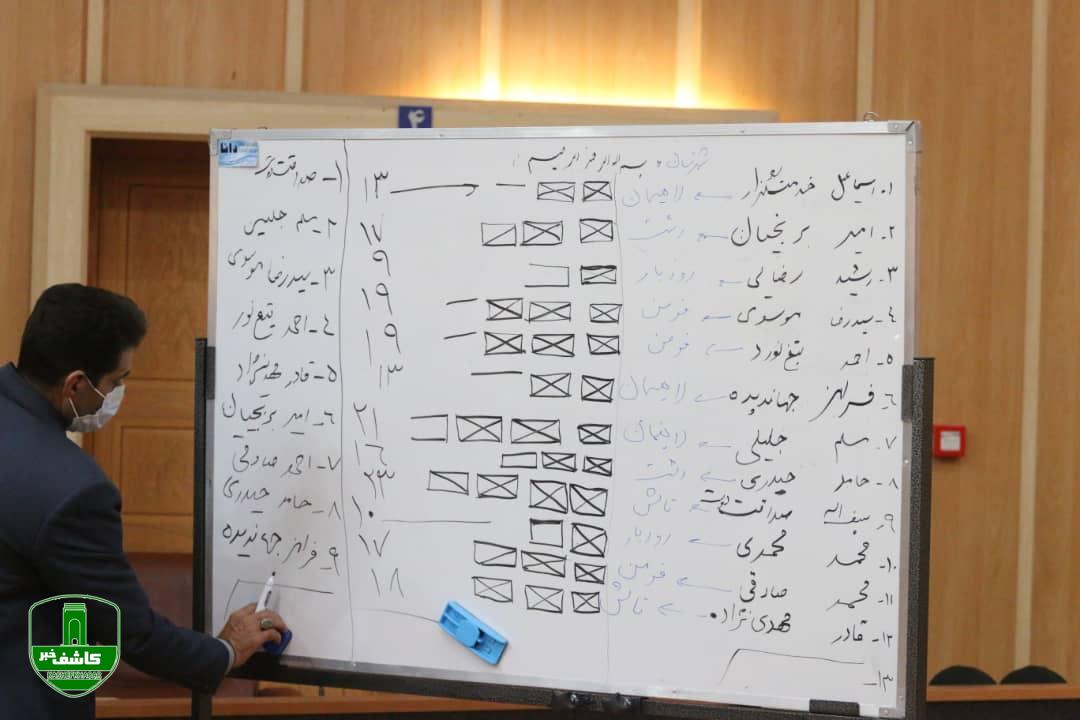 ۴
دانا
شهرستان
بسم الله الرحمن الرحیم
۱- اسماعیل خدمتگذار ← لاهیجان ۱۳
۲- امیر بریجیان ← رشت ۱۷
۳- رشید رضایی ← رودبار ۹
۴- سیدرضا موسوی ← فومن ۱۹
۵- احمد تیغ نورد ← فومن ۱۹
۶- فرامرز جهاندیده ← لاهیجان ۱۳
۷- مسلم جلیلی ← لاهیجان ۲۱
۸- حامد حیدری ← رشت ۱۶
۹- سیف اله صداقت ← تالش ۲۳
۱۰- محمد محمدی ← رودبار ۱۰
۱۱- محمد صادقی ← فومن ۱۷
۱۲- قادر مهدی نژاد ← تالش ۱۸
۱۳-
۱- صداقت
۲- مسلم جلیلی
۳- سیدرضا موسوی
۴- احمد تیغ نورد
۵- قادر مهدی نژاد
۶- امیر بریجیان
۷- احمد صادقی
۸- حامد حیدری
۹- فرامرز جهاندیده
کاشف خبر
KASHEFKHABAR